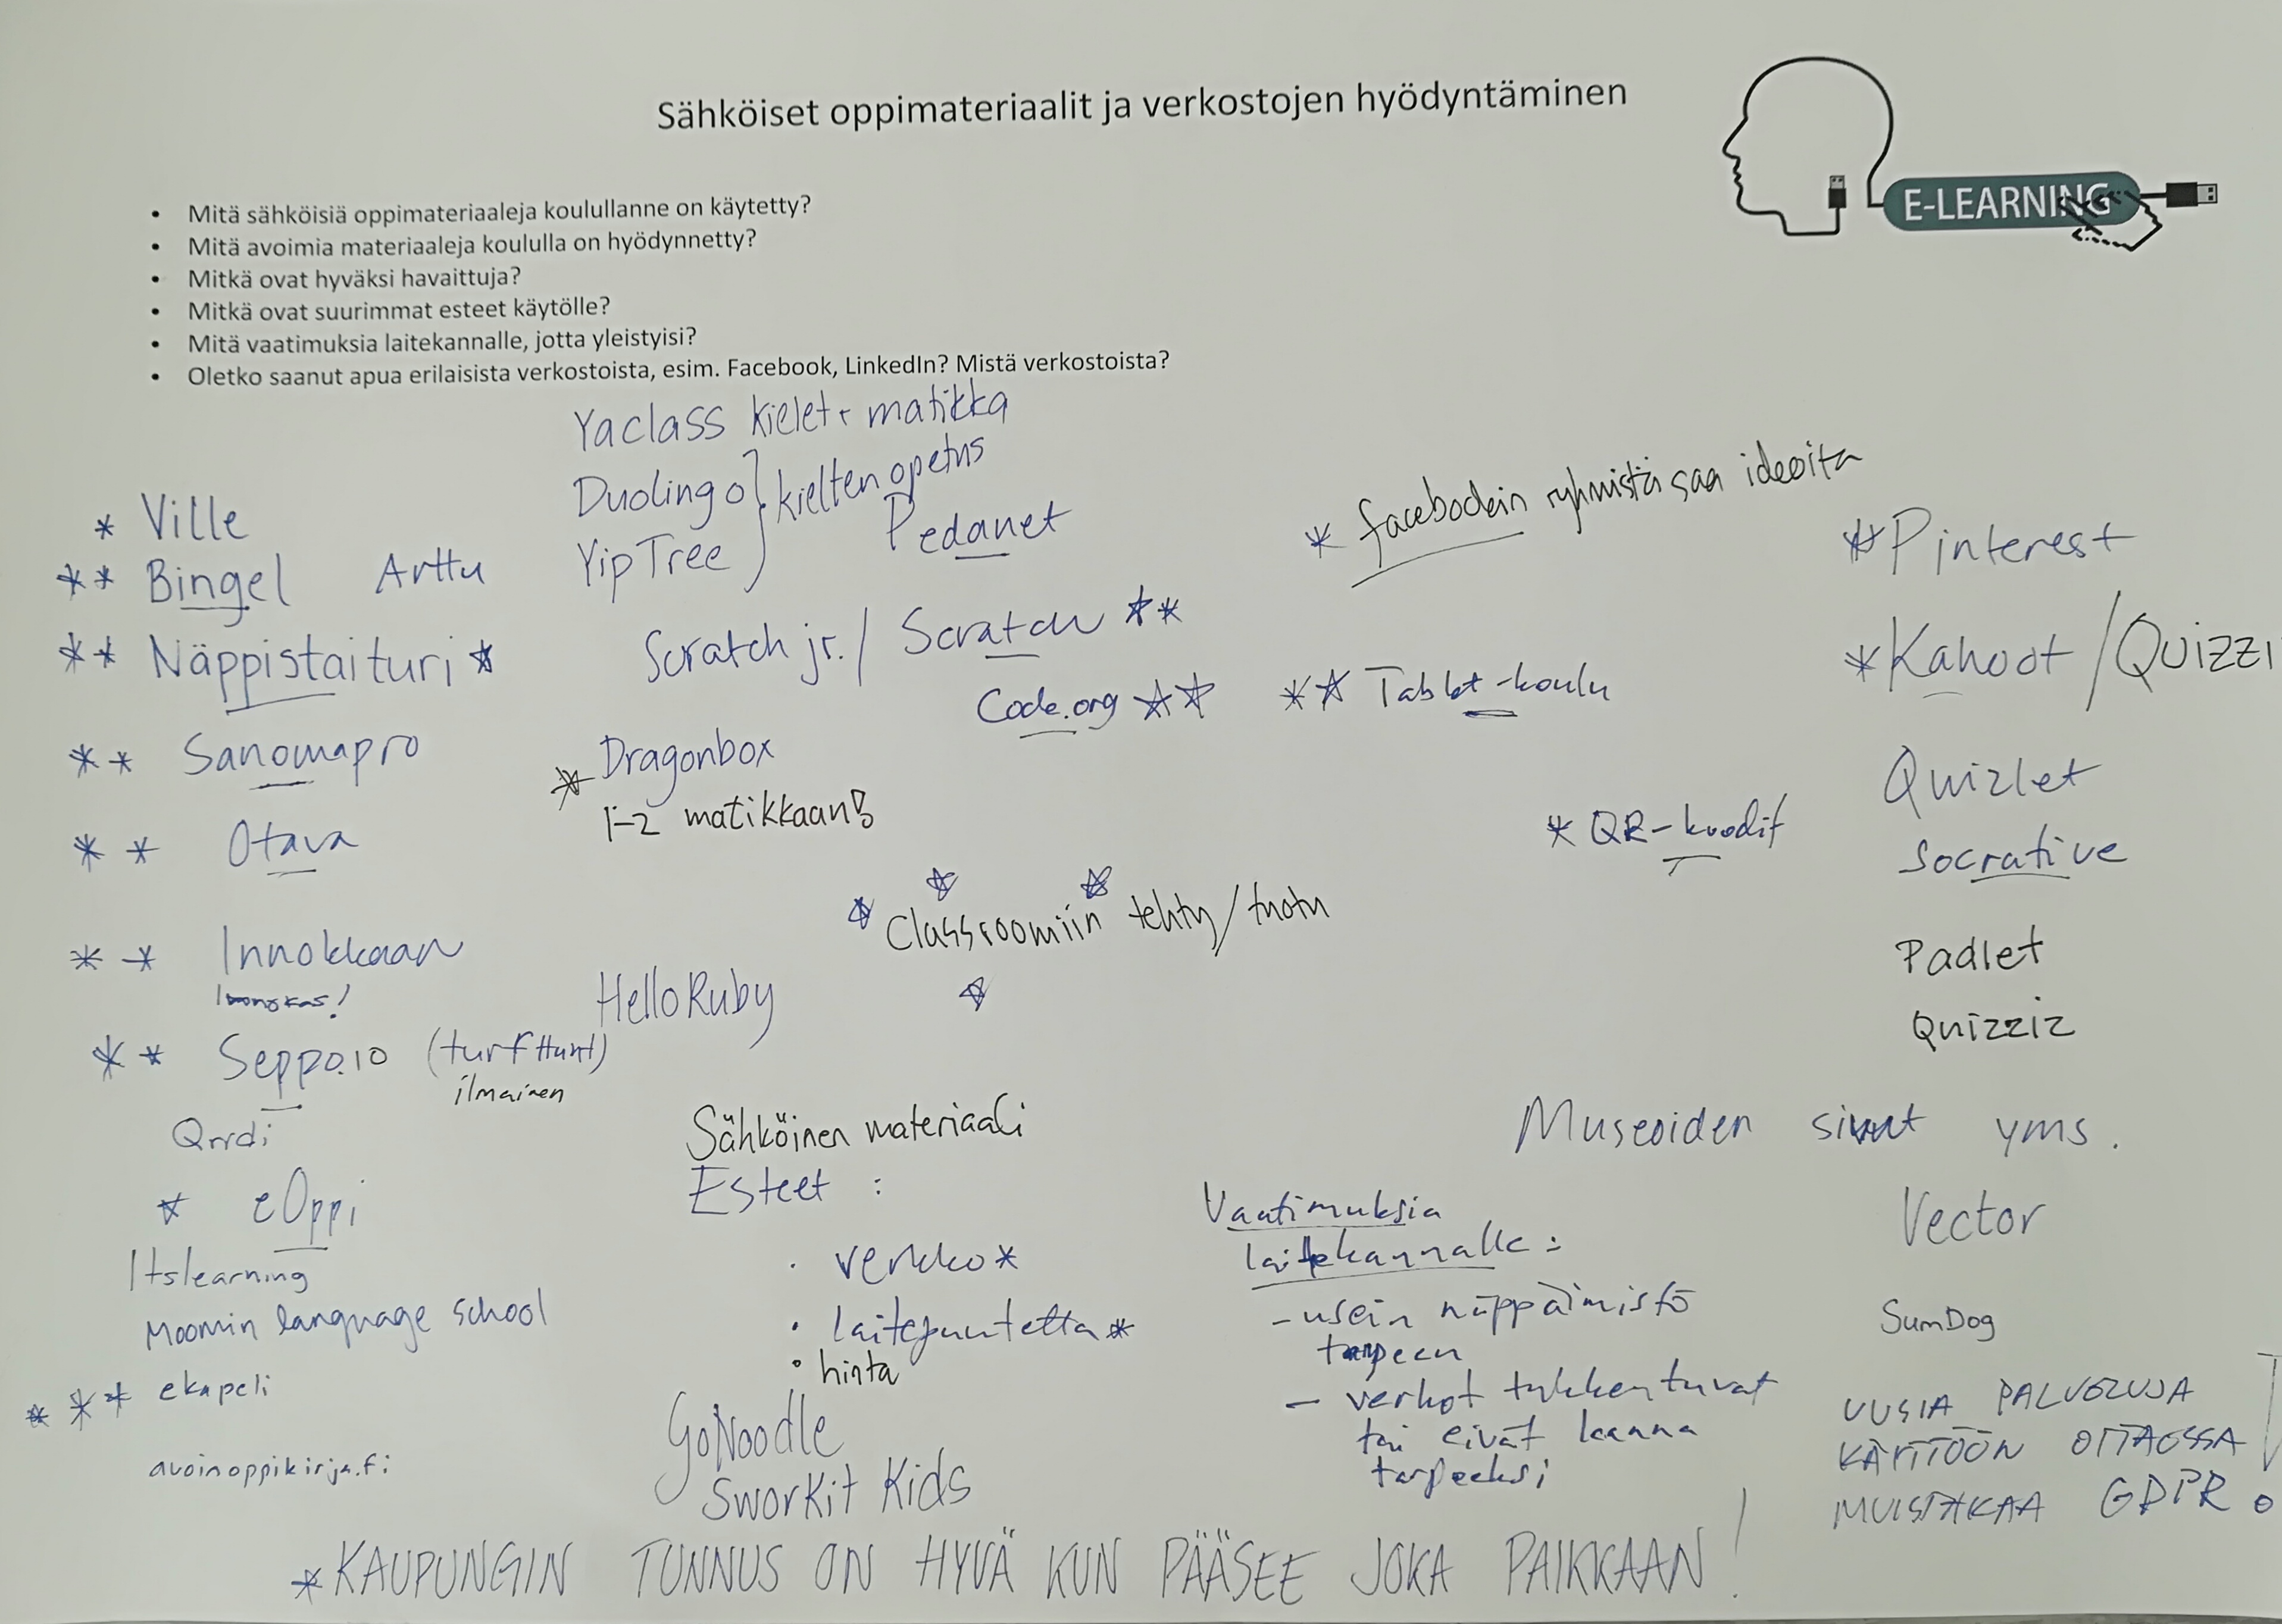 Sähköiset oppimateriaalit ja verkostojen hyödyntäminen
E-LEARNING
• Mitä sähköisiä oppimateriaaleja koulullanne on käytetty?
• Mitä avoimia materiaaleja koululla on hyödynnetty?
• Mitkä ovat hyväksi havaittuja?
• Mitkä ovat suurimmat esteet käytölle?
• Mitä vaatimuksia laitekannalle, jotta yleistyisi?
• Oletko saanut apua erilaisista verkostoista, esim. Facebook, LinkedIn? Mistä verkostoista?
* Ville
** Bingel Arttu
** Näppistaituri *
** Sanomapro
** Otava
** Innokkaan
** Seppo.io (turfHunt)
ilmainen
Qrrdi
* eOppi
Itslearning
Moomin language school
*** ekapeli
avoinoppikirja.fi
Yaclass kielet + matikka
Duolingo } kielten opetus
YipTree
Pedanet
Scratch jr. / Scratch **
Code.org **
* Dragonbox
1-2 matikkaan!
* Classroomiin tehty/tuotu
HelloRuby
Sähköinen materiaali
Esteet :
· verkko *
· laitepuutetta *
· hinta
GoNoodle
Sworkit Kids
* facebookin ryhmistä saa ideoita
** Tablet-koulu
* QR-koodit
*Pinterest
*Kahoot/Quizzi
Quizlet
Socrative
Padlet
Quizziz
Museoiden sivut yms.
Vaatimuksia
laitekannalle :
- usein näppäimistö
tarpeen
- verkot tukkeutuvat
tai eivät kanna
tarpeeksi
Vector
SumDog
UUSIA PALVELUJA
KÄYTTÖÖN OTTAESSA
MUISTAKAA GDPR!
*KAUPUNGIN TUNNUS ON HYVÄ KUN PÄÄSEE JOKA PAIKKAAN!